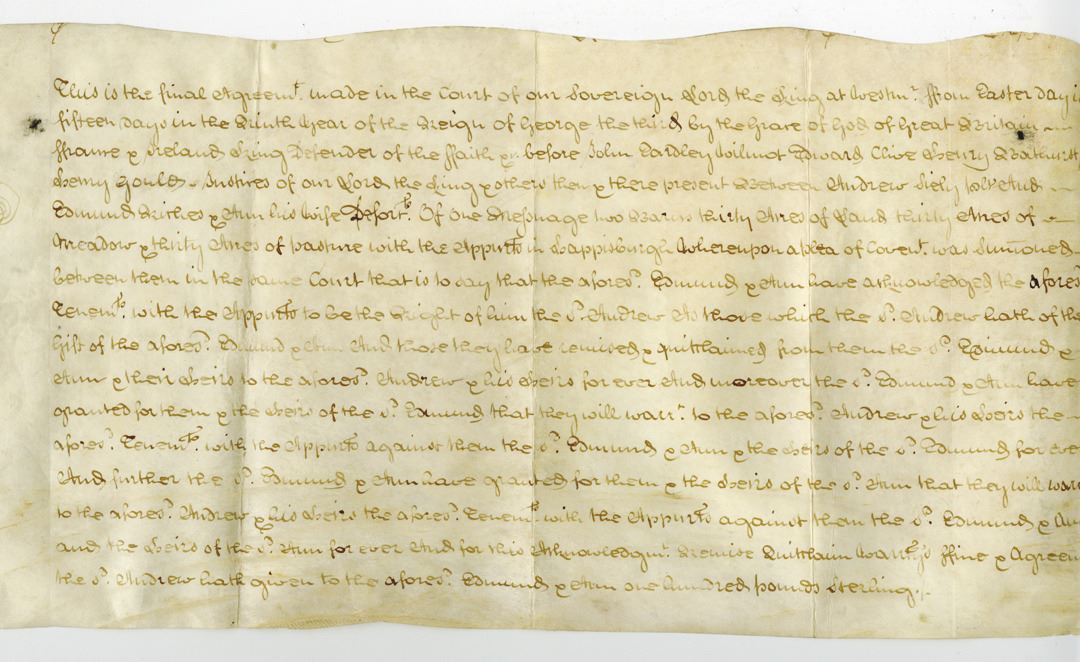 This is the final Agreem.t made in the Court of our Sovereign Lord the King at Westm.r From Easter Day i
fifteen days in the Ninth Year of the Reign of George the third by the Grace of God of Great Britain
ffrance & Ireland King Defender of the ffaith &c before John Eardley Wilmot Edward Clive Henry Bathurst
Henry Gould Justices of our Lord the King & others then & there present Between Andrew Siely pl't And
Edmund & Ann his Wife Defort.s Of One Messuage two Barns thirty Acres of Land thirty Acres of
Meadow & thirty Acres of pasture with the Appurt.s in Happisburgh Whereupon a plea of Coven.t was Sum̄oned
between them in the same Court that is to say that the afores.d Edmund & Ann have acknowledged the afores
Tenem.ts with the Appurt.s to be the Right of him the s.d Andrew As those which the s.d Andrew hath of the
Gift of the afores.d Edmund & Ann And those they have remised & quitclaimed from them the s.d Edmund &
Ann & their Heirs to the afores.d Andrew & his Heirs for ever And moreover the s.d Edmund & Ann have
granted for them & the Heirs of the s.d Edmund that they will warr.t to the afores.d Andrew & his Heirs the
afores.d Tenem.ts with the Appurt.s against them the s.d Edmund & Ann & the Heirs of the s.d Edmund for eve
And further the s.d Edmund & Ann have granted for them & the Heirs of the s.d Ann that they will warr
to the afores.d Andrew & his Heirs the afores.d Tenem.ts with the Appurt.s against them the s.d Edmund & An
and the Heirs of the s.d Ann for ever And for this Acknowledgm.t Remise Quitclaim Warr.ty ffine & Agreem
the s.d Andrew hath given to the afores.d Edmund & Ann one hundred pounds Sterling.